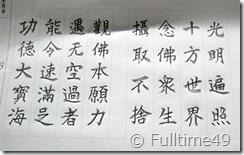 光明遍照
十方世界
念佛衆生
攝取不捨
觀佛本願力
遇无空過者
能令速滿足
功德大寶海
© Fulltime49